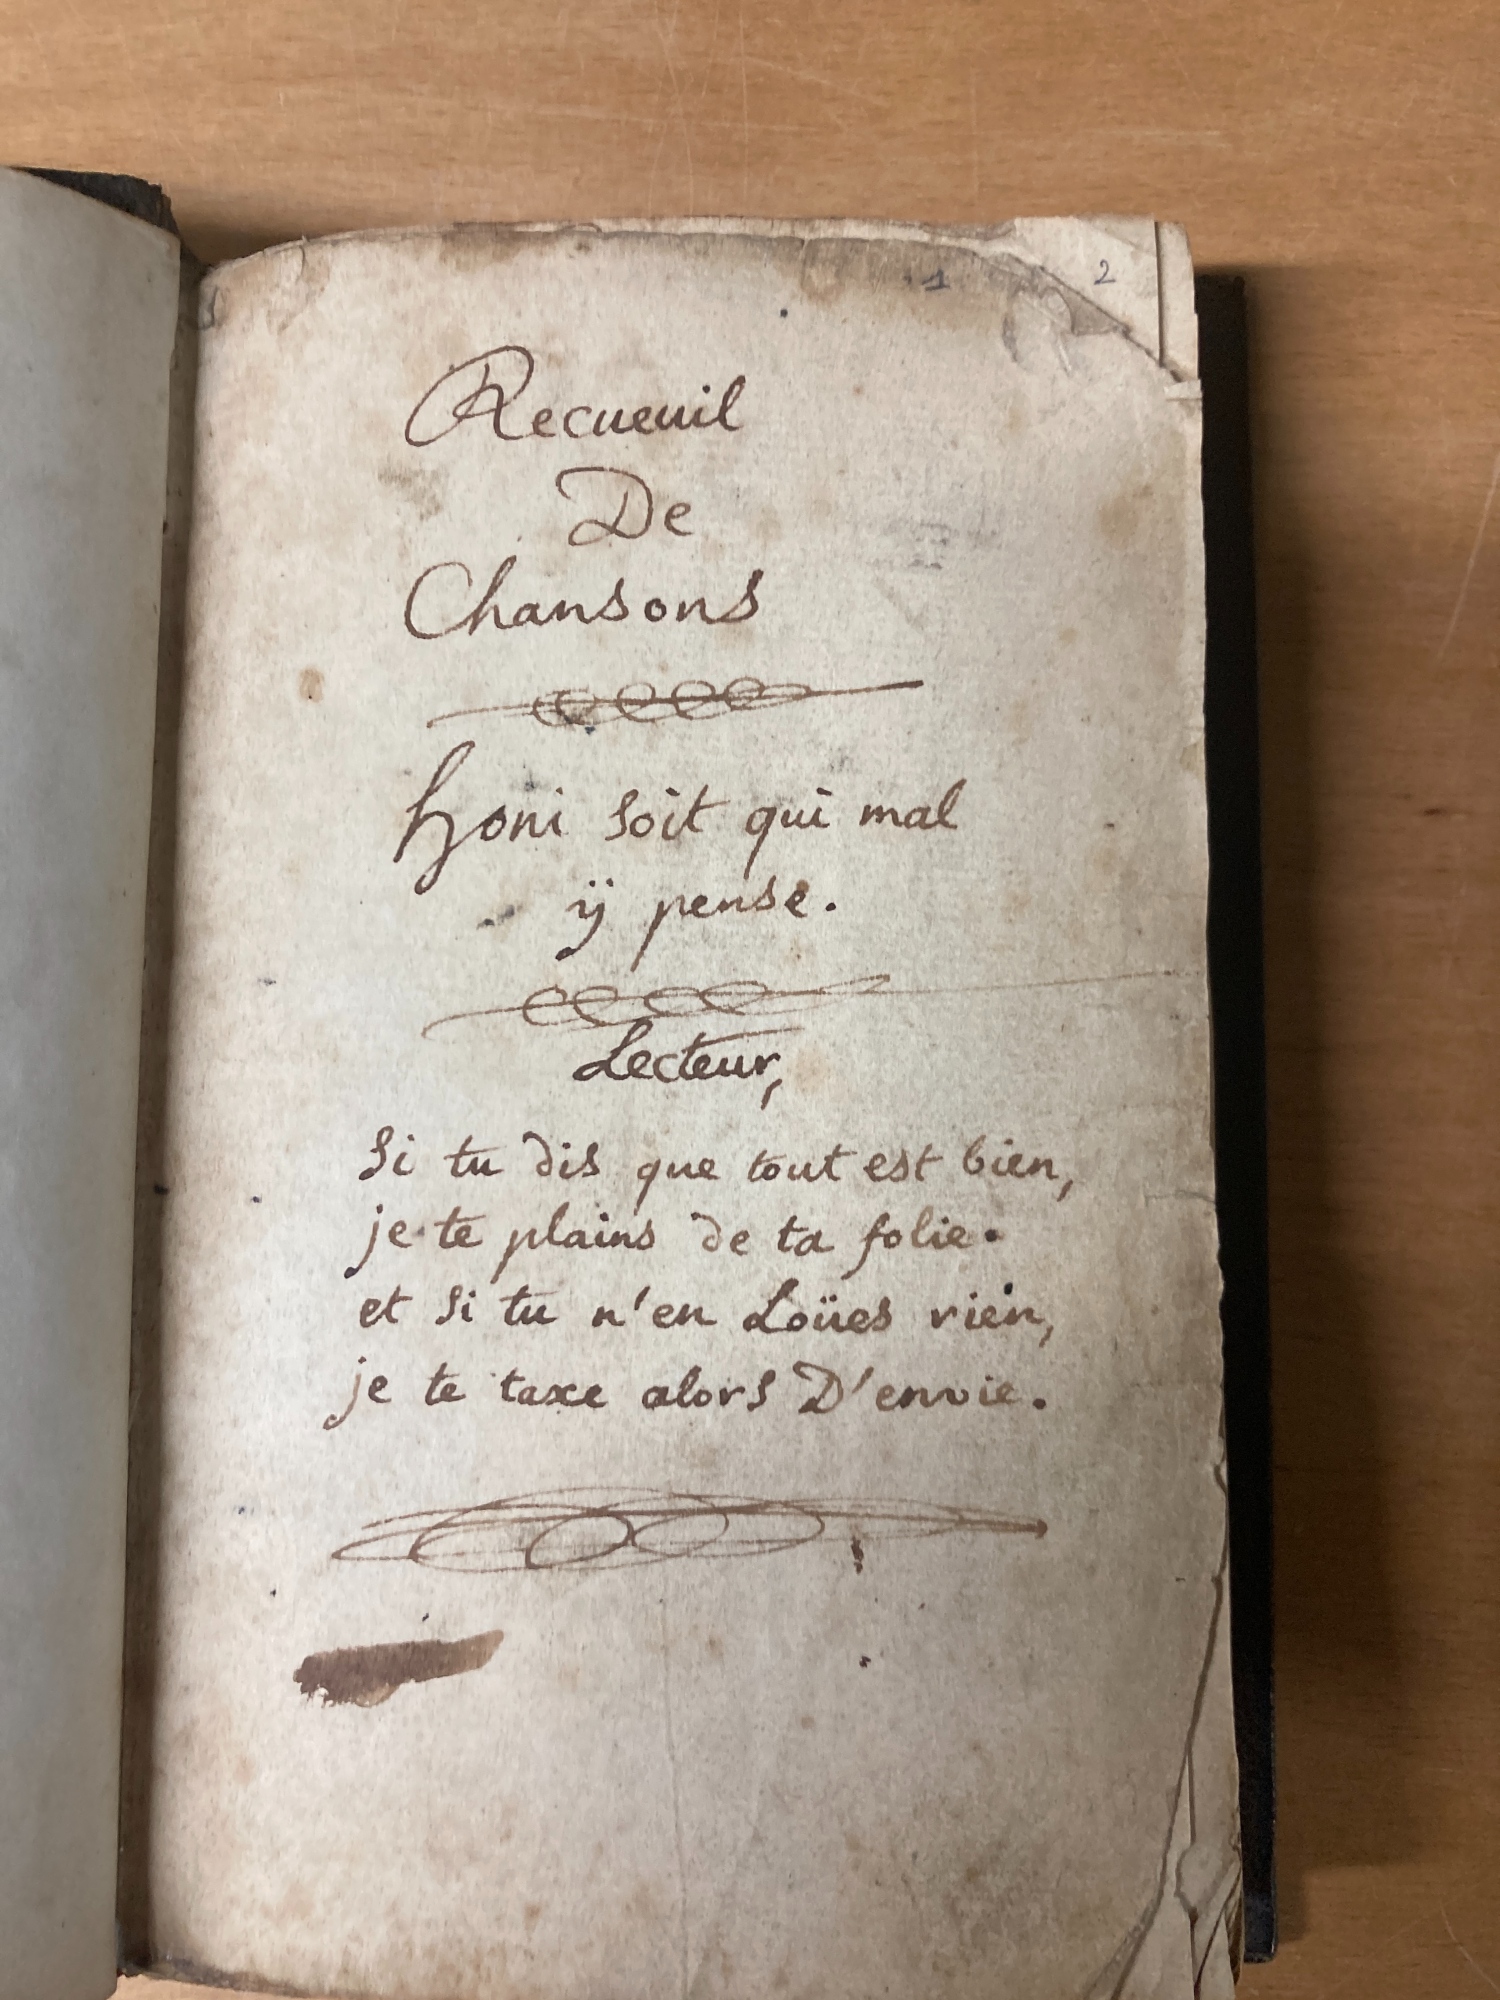 1
2
Recueuil
De
Chansons
honi soit qui mal
ÿ pense.
Lecteur,
si tu dis que tout est bien,
je te plains de ta folie.
et si tu n'en Loües rien,
je te taxe alors D'envie.